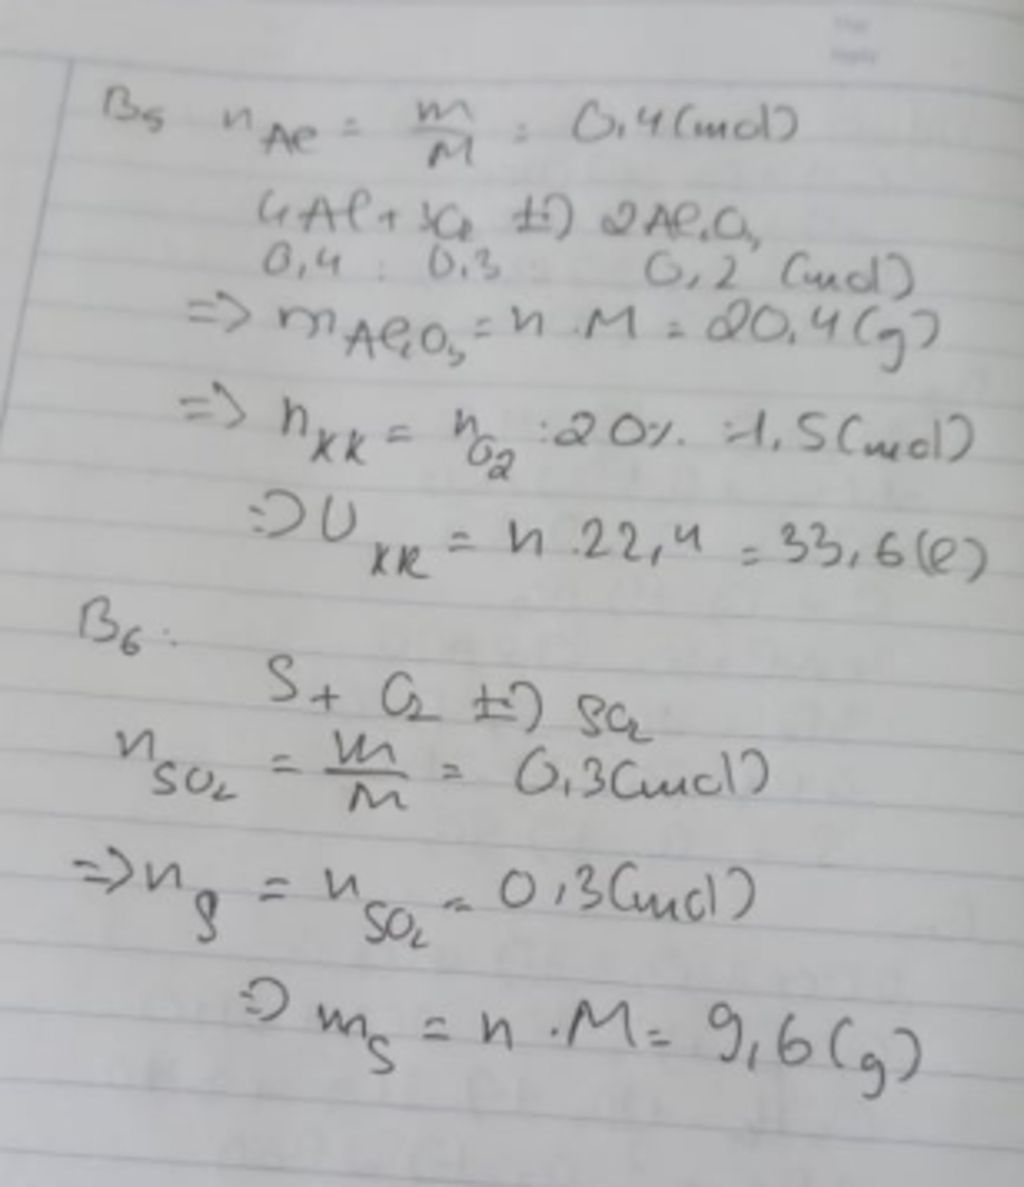 B5 nAl = m/M = 0,4 (mol)
4Al + 3O2 t°→ 2Al2O3
0,4 : 0,3 0,2 (mol)
=> mAl2O3 = n . M = 20,4 (g)
=> nKK = nO2 : 20% = 1,5 (mol)
=> VKK = n . 22,4 = 33,6 (l)
B6 :
S + O2 t°→ SO2
nSO2 = m/M = 0,3 (mol)
=> nS = nSO2 = 0,3 (mol)
=> mS = n . M = 9,6 (g)